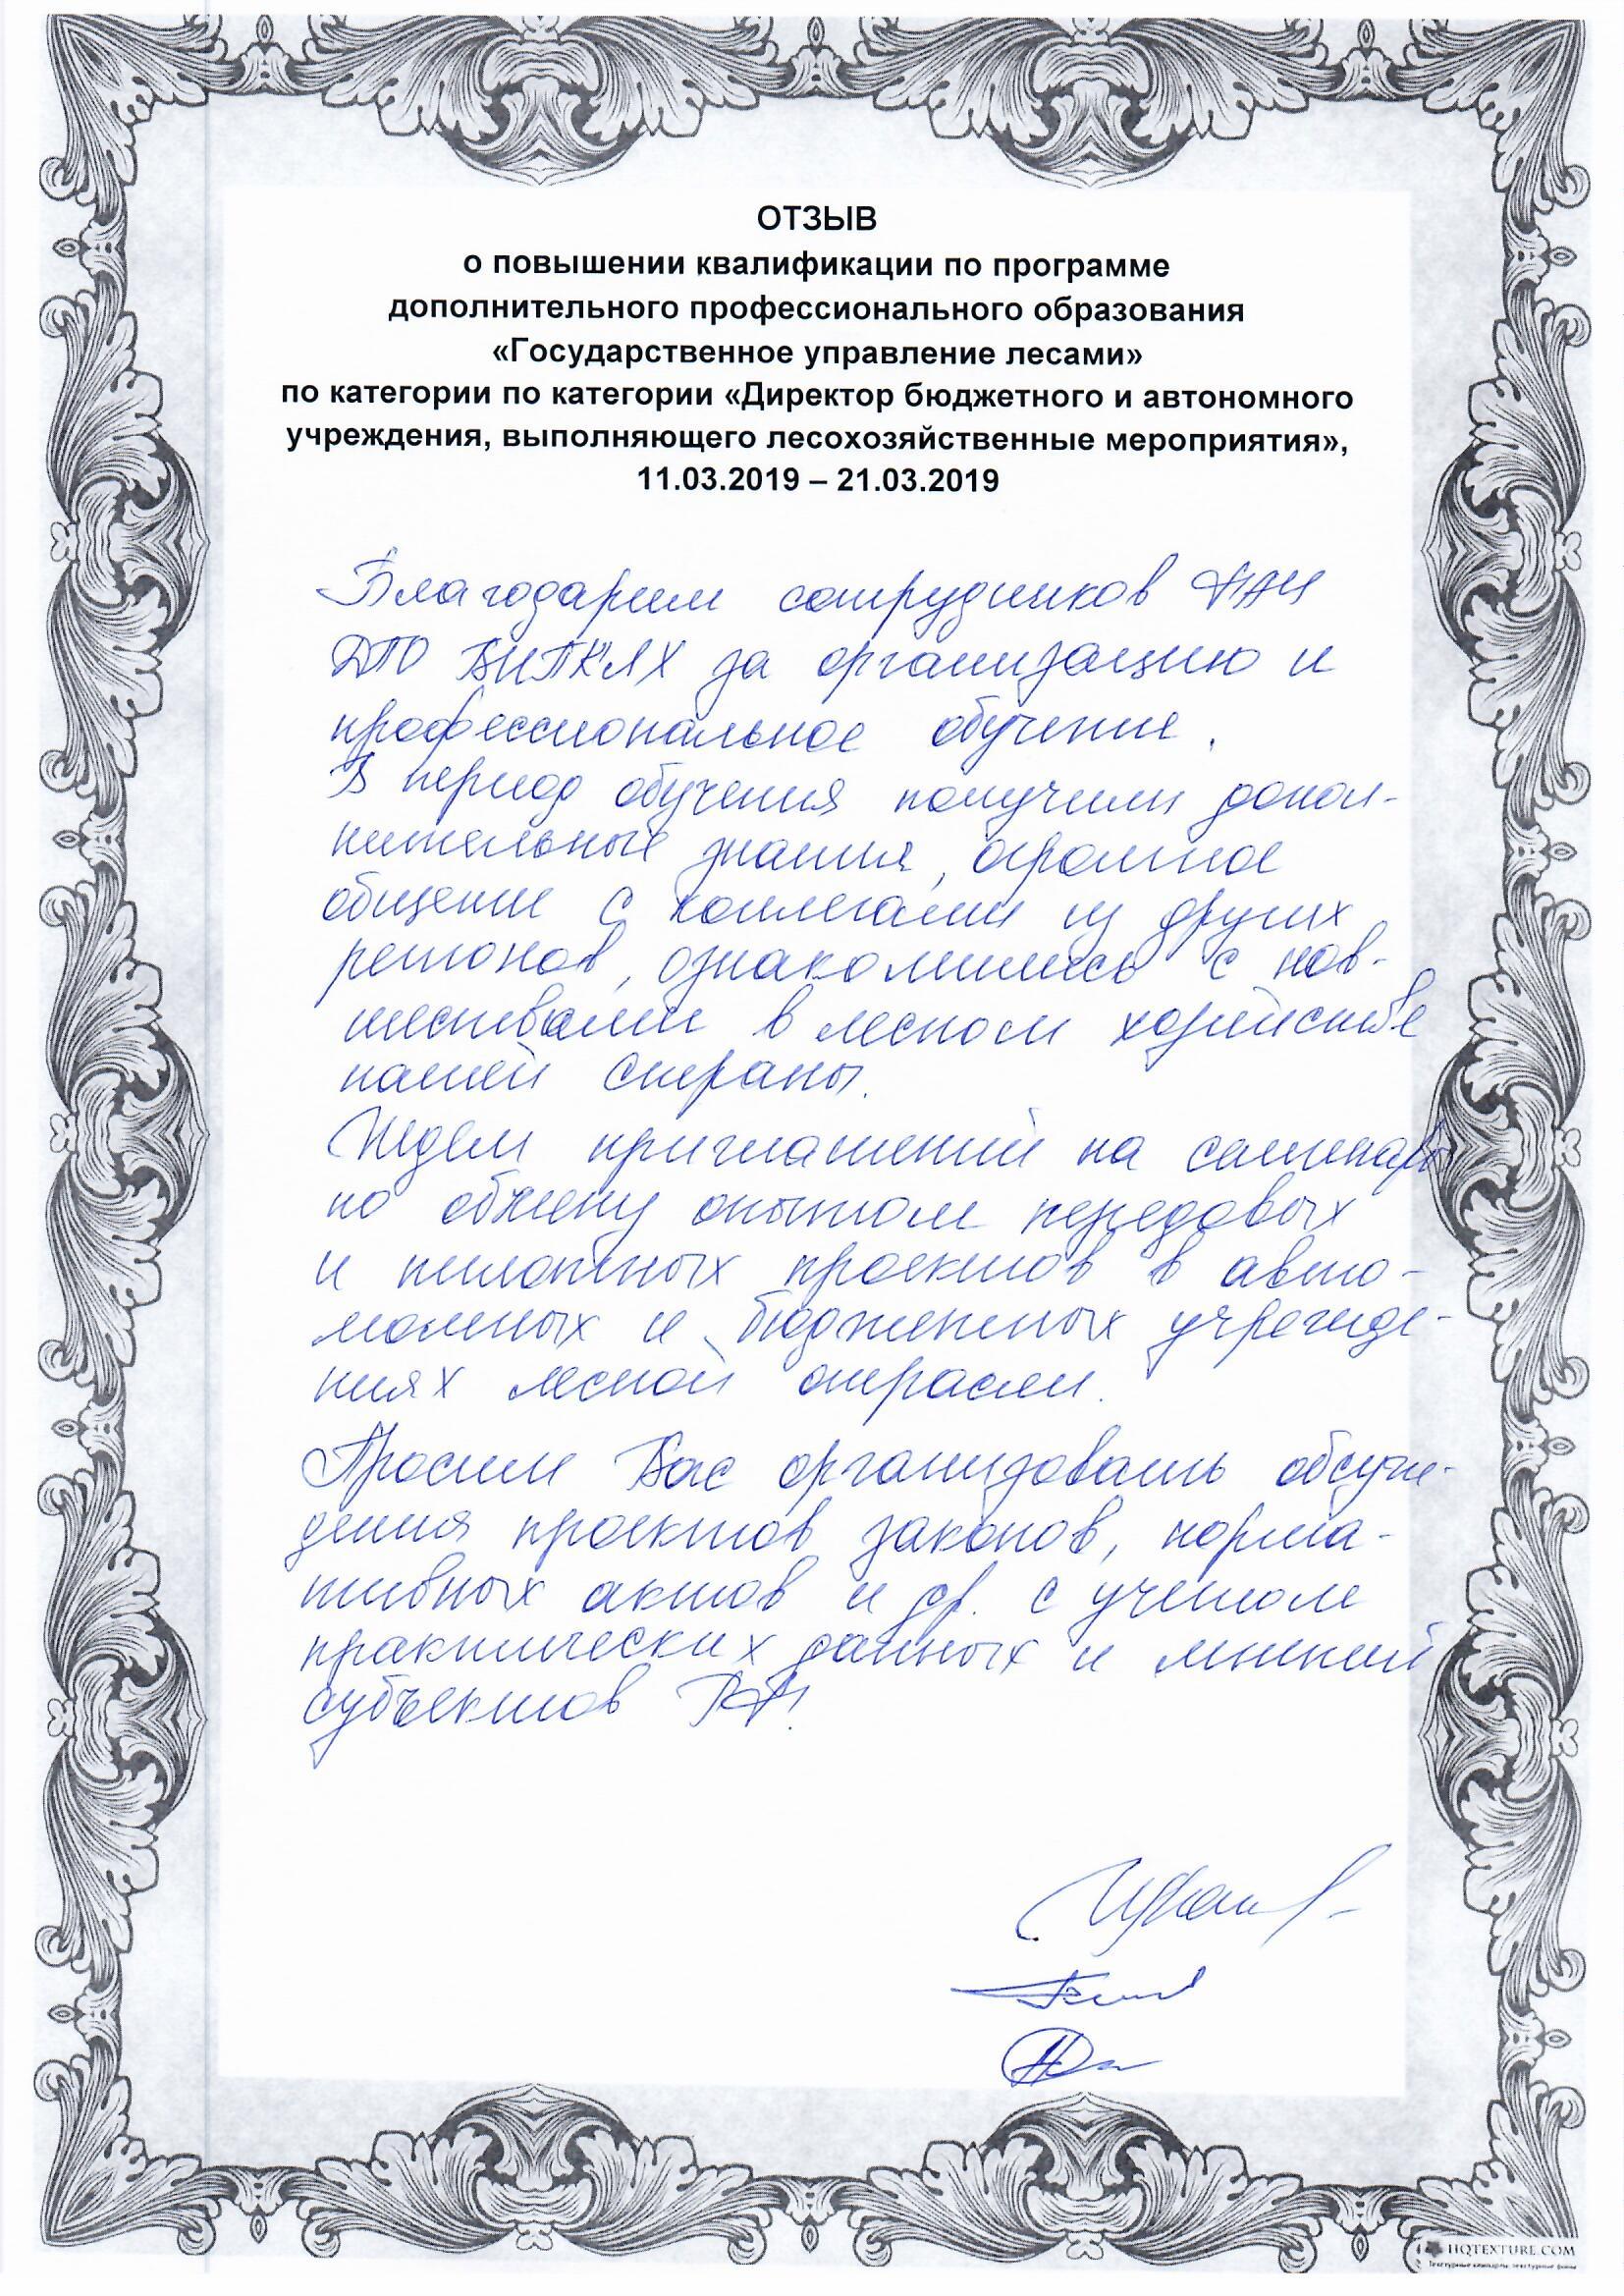 ОТЗЫВ
о повышении квалификации по программе
дополнительного профессионального образования
«Государственное управление лесами»
по категории по категории «Директор бюджетного и автономного
учреждения, выполняющего лесохозяйственные мероприятия»,
11.03.2019 – 21.03.2019
Благодарим сотрудников
ДПО ВИПКЛХ за организацию и
профессиональное обучение.
В период обучения получили допол-
нительные знания, огромное
общение с коллегами из других
регионов, ознакомились с нов-
шествами в лесном хозяйстве
нашей страны.
Ждем приглашений на семинары
по обмену опытом передовых
и пилотных проектов в авто-
номных и бюджетных учрежде-
ниях лесной отрасли.
Просим Вас организовать обсуж-
дения проектов законов, норма-
тивных актов и др. с учетом
практических данных и мнений
субъектов РФ!
HQTEXTURE.COM